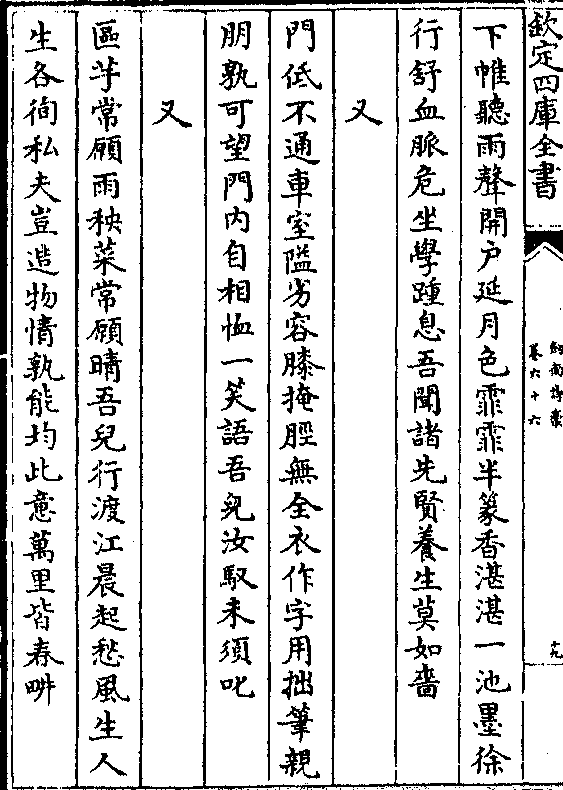 欽定四庫全書
劍南詩藁
卷六十六
十九
下帷聽雨聲開戸延月色霏霏半篆香湛湛一池墨徐
行舒血脈危坐學踵息吾聞諸先賢養生莫如嗇
又
門低不通車室隘劣容膝掩脛無全衣作字用拙筆親
朋孰可望門内自相恤一笑語吾兒汝馭未須叱
又
區芋常願雨秧菜常願晴吾兒行渡江晨起愁風生人
生各徇私夫豈造物情孰能均此意萬里皆春畊